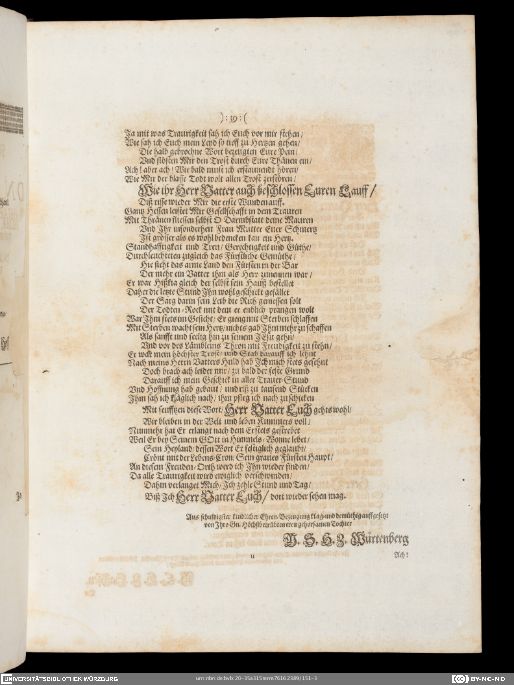 ):19:(
Ja mit was Traurigkeit sah ich Euch vor mir stehen/
Wie sah ich Euch mein Leyd so tieff zu Hertzen gehen/
Die halb gebrochne Wort bezeugten Eure Pein/
Und flößten Mir den Trost durch Eure Thränen ein/
Ach! aber ach! Wie bald must ich erstaunendt hören/
Wie Mir der blasse Todt wolt allen Trost zerstöhren/
Wie ihr Herr Vatter auch beschlossen Euren Lauff/
Diß risse wieder Mir die erste Wunden auff.
Gantz Hessen leistet Mir Gesellschafft in dem Trauren
Mit Thränen fliessen selbst O Darmbstatt deine Mauren
Und Ihr insonderheit Frau Mutter Euer Schmertz
Ist grösser als es wohl bedencken kan ein Hertz.
Standhafftigkeit und Treu/ Gerechtigkeit und Güthe/
Durchleuchteten zugleich das Fürstliche Gemüthe/
Hie sieht das arme Land den Fürsten in der Bar
Der mehr ein Vatter ihm als Herr zunennen war/
Er war Hißkia gleich der selbst sein Hauß bestellet
Daher die letzte Stund Ihn wohlgeschickt gefället
Der Sarg darin sein Leib die Ruh geniessen solt
Der Todten-Rock mit dem er endlich prangen wolt
War Ihm stets im Gesicht/ Er gieng mit Sterben schlaffen
Mit Sterben wacht sein Hertz/ nichts gab Ihm mehr zu schaffen
Als sanfft und seelig hin zu seinem JEsu gehn/
Und vor des Lämbleins Thron mit Freudigkeit zu stehn/
Er war mein höchster Trost/ und Stab darauff ich lehnt
Nach meins Herrn Vatters Huld hab Ich mich stets gesehnt
Doch brach ach leider mir/ zu bald der feste Grund
Darauff ich mein Geschick in aller Trauer-Stund
Und Hoffnung hab gebaut/ und riß zu tausend Stücken
Ihm sah ich kläglich nach/ ihm pfleg ich nach zuschicken
Mit seufftzen diese Wort/ Herr Vatter Euch gehts wohl/
Wir bleiben in der Welt und leben Kummers voll/
Nunmehr hat Er erlangt nach dem Er stets gestrebet
Weil Er bey Seinem GOtt in Himmels-Wonne lebet/
Sein Heyland/ dessen Wort Er festiglich geglaubt/
Crönt mit der Lebens-Cron Sein graues Fürsten Haupt/
An diesem Freuden-Orth werd ich Ihn wieder finden/
Da alle Traurigkeit wird ewiglich verschwinden/
Dahin verlanget Mich/ Ich zehle Stund und Tag/
Biß Ich Herr Vatter Euch/ dort wieder sehen mag.
Aus schuldigster kindlicher Ehren-Bezeugung klag und demüthig auffgesetzt
von Ihro Gn. Höchstbetrübten treu gehorsamen Tochter
M. S. H. Z. Würtenberg
u
Ach!
UNIVERSITÄTSBIBLIOTHEK WÜRZBURG
BY-NC-ND